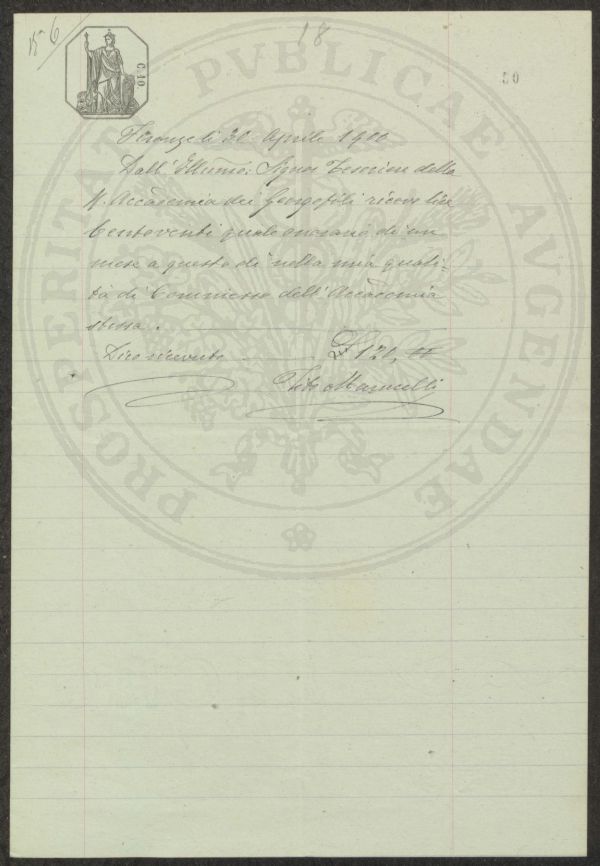 18
50
C. 10
PROSPERITATI PVBLICAE AVGENDAE
Firenze li 30 Aprile 1900
Dall' Illmo: Signor Tesoriere della
R. Accademia dei Georgofili ricevo lire
Centoventi quale onorario di un
mese a questo dì nella mia quali-
tà di Commesso dell' Accademia
stessa.
Dico ricevute £ 120,
Tito Marucelli